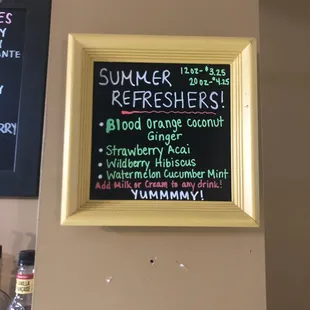 ES
Y
Y
ANTE
RRY
SUMMER
12oz-$3.25
20oz-$4.25
REFRESHERS!
• Blood Orange Coconut
Ginger
• Strawberry Acai
• Wildberry Hibiscus
• Watermelon Cucumber Mint
Add Milk or Cream to any drink!
YUMMMMY!